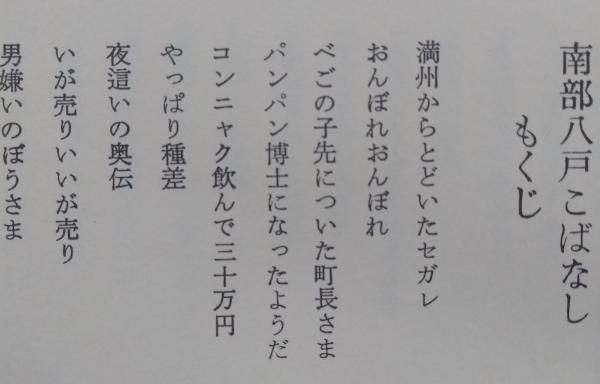 南部八戸こばなし
もくじ
満州からとどいたセガレ
おんぼれおんぼれ
べごの子先についた町長さま
パンパン博士になったようだ
コンニャク飲んで三十万円
やっぱり種差
夜這いの奥伝
いが売りいいが売り
男嫌いのぼうさま